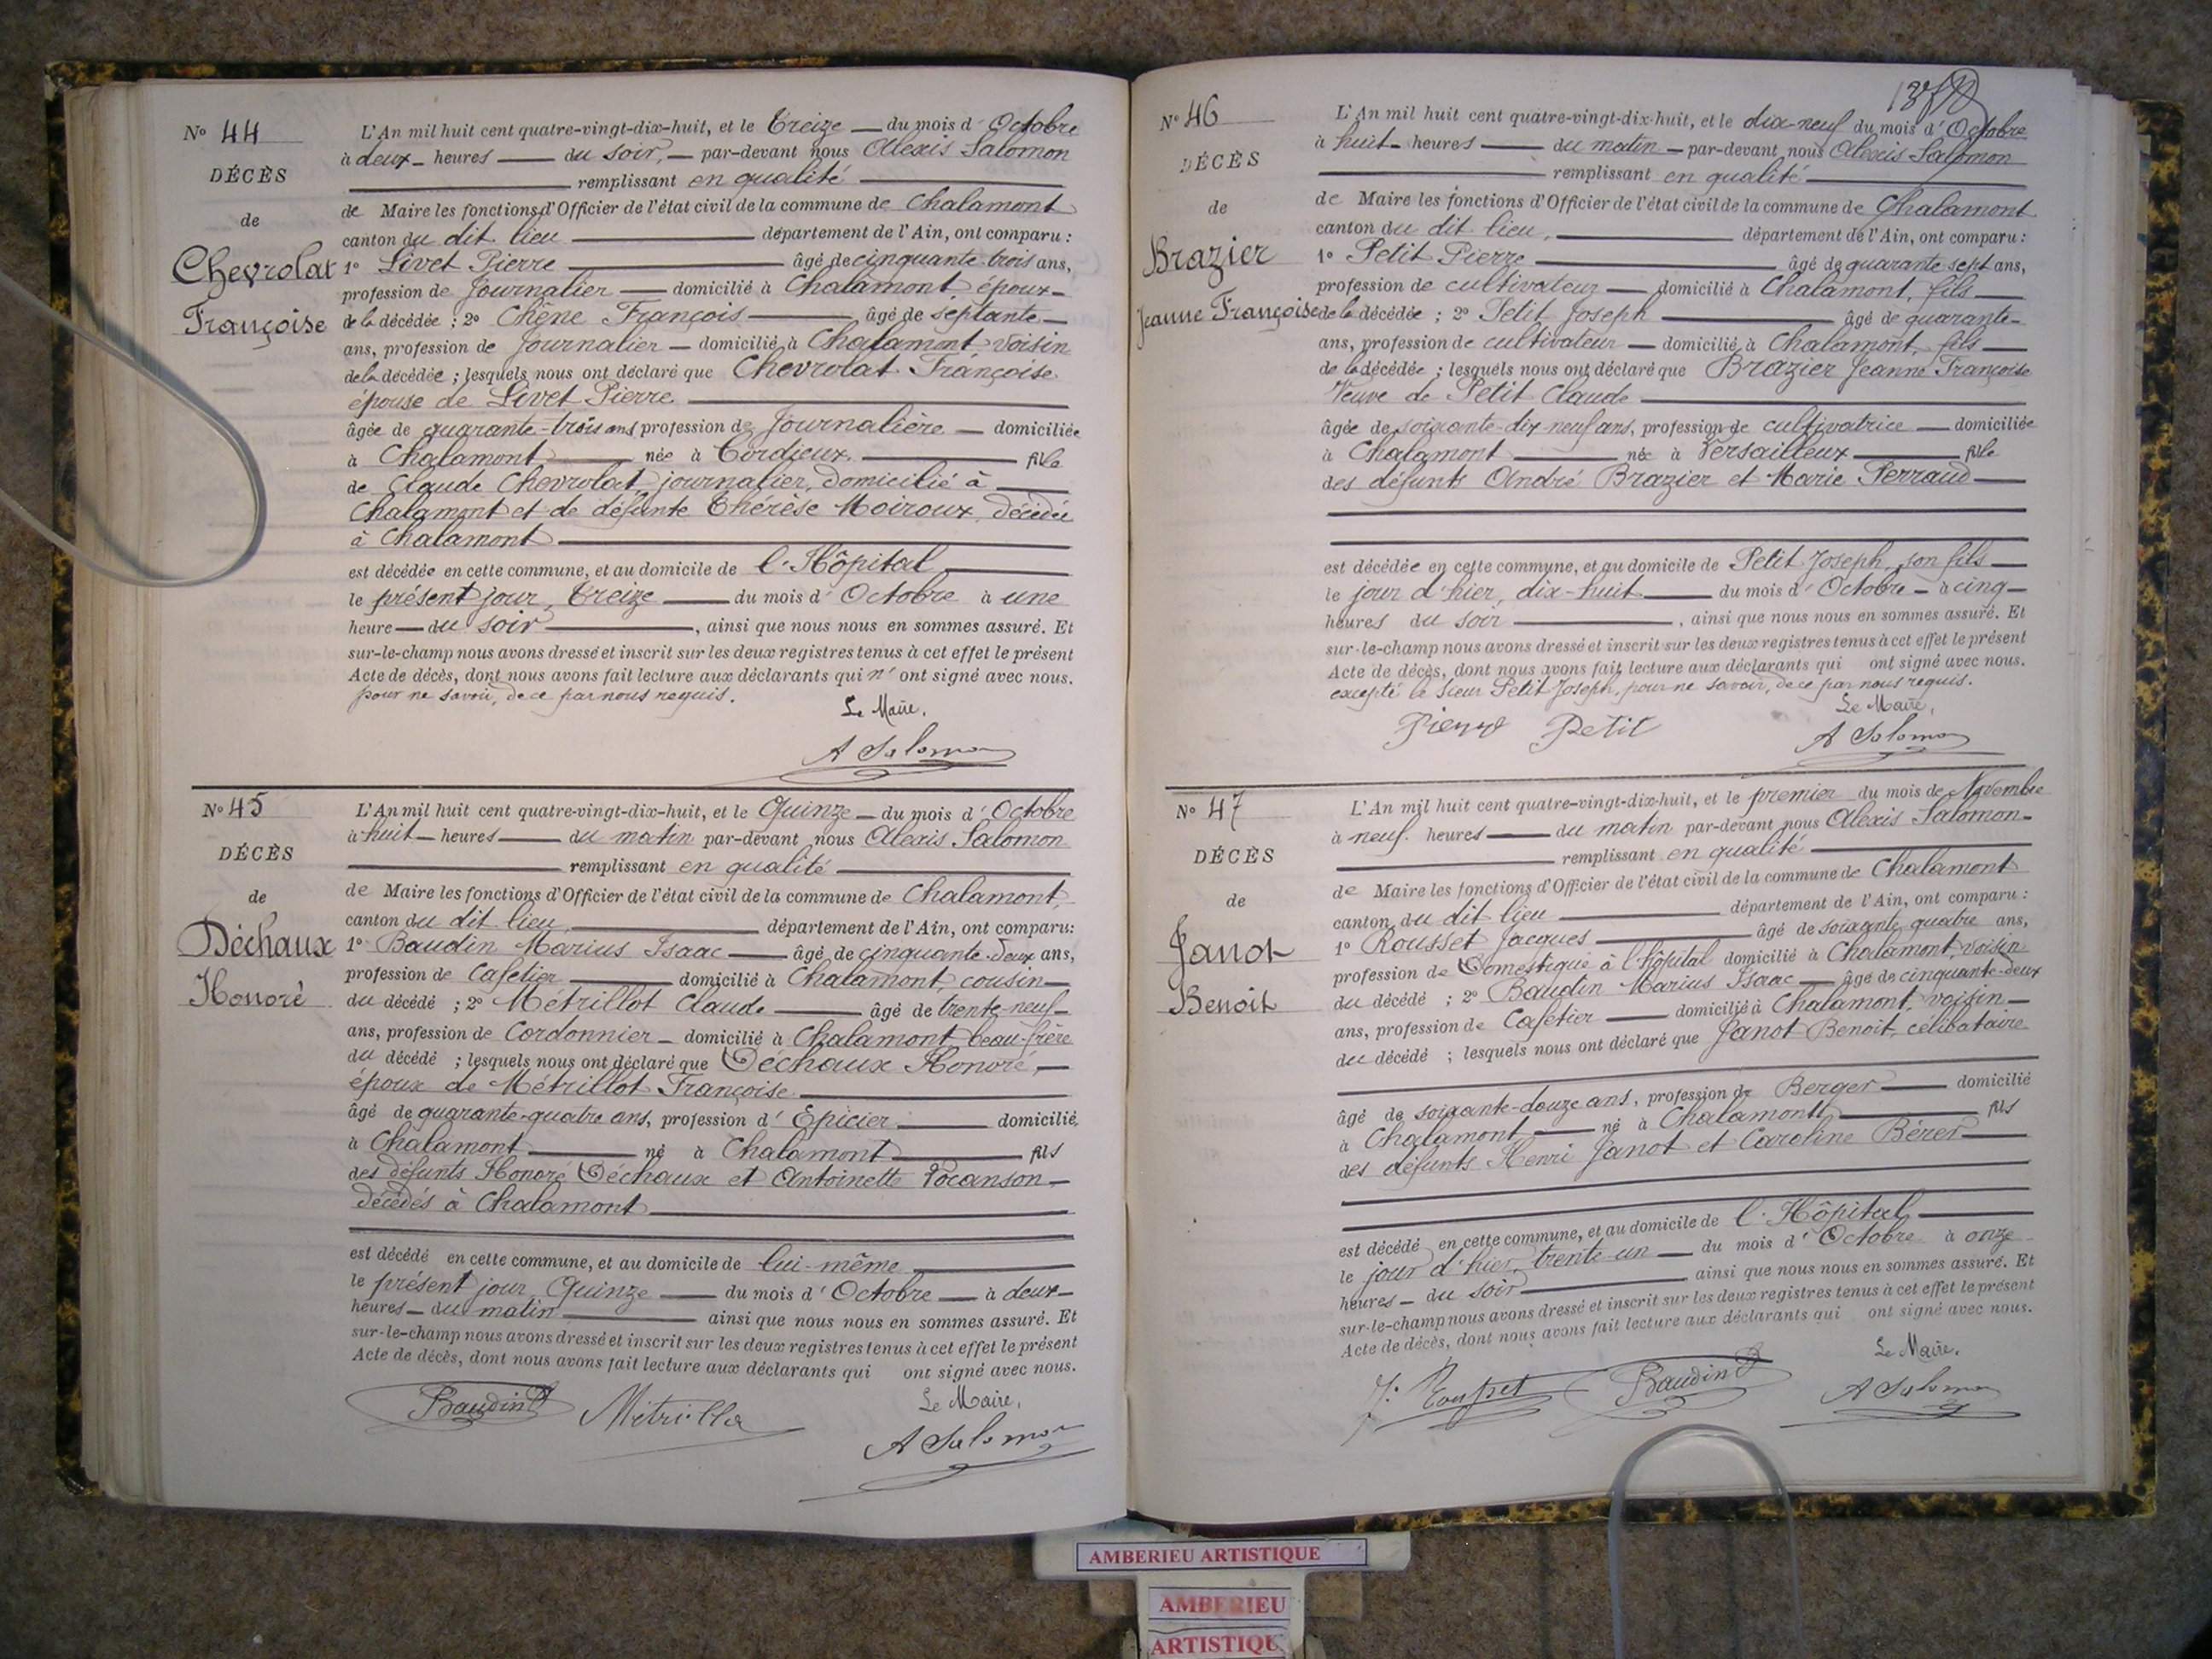 N° 44
DÉCÈS
de
Chevrolat
Françoise
L'An mil huit cent quatre-vingt-dix-huit, et le Treize du mois d' Octobre
à deux heures du soir, par-devant nous Alexis Salomon
remplissant en qualité
de Maire les fonctions d'Officier de l'état civil de la commune de Chalamont
canton du dit lieu département de l'Ain, ont comparu :
1° Livet Pierre âgé de cinquante trois ans,
profession de Journalier domicilié à Chalamont, époux
de la décédée ; 2° Chêne François âgé de septante
ans, profession de Journalier domicilié à Chalamont voisin
de la décédée ; lesquels nous ont déclaré que Chevrolat Françoise
épouse de Livet Pierre
âgée de quarante-trois ans profession de Journalière domiciliée
à Chalamont née à Cordieux fille
de Claude Chevrolat journalier, domicilié à
Chalamont et de défunte Thérèse Moiroux, décédée
à Chalamont
est décédée en cette commune, et au domicile de l'Hôpital
le présent jour, Treize du mois d' Octobre à une
heure du soir, ainsi que nous nous en sommes assuré. Et
sur-le-champ nous avons dressé et inscrit sur les deux registres tenus à cet effet le présent
Acte de décès, dont nous avons fait lecture aux déclarants qui n' ont signé avec nous.
pour ne savoir, de ce par nous requis.
Le Maire,
A Salomon
N° 45
DÉCÈS
de
Déchaux
Honoré
L'An mil huit cent quatre-vingt-dix-huit, et le Quinze du mois d' Octobre
à huit heures du matin par-devant nous Alexis Salomon
remplissant en qualité
de Maire les fonctions d'Officier de l'état civil de la commune de Chalamont,
canton du dit lieu, département de l'Ain, ont comparu:
1° Baudin Marius Isaac âgé de cinquante-deux ans,
profession de Cafetier domicilié à Chalamont, cousin
du décédé ; 2° Métrillot Claude âgé de trente-neuf
ans, profession de Cordonnier domicilié à Chalamont beau-frère
du décédé ; lesquels nous ont déclaré que Déchaux Honoré,
époux de Métrillot Françoise
âgé de quarante-quatre ans, profession d' Epicier domicilié
à Chalamont né à Chalamont fils
des défunts Honoré Déchaux et Antoinette Vocanson
décédés à Chalamont
est décédé en cette commune, et au domicile de lui-même
le présent jour Quinze du mois d' Octobre à deux
heures du matin ainsi que nous nous en sommes assuré. Et
sur-le-champ nous avons dressé et inscrit sur les deux registres tenus à cet effet le présent
Acte de décès, dont nous avons fait lecture aux déclarants qui ont signé avec nous.
Le Maire,
Baudin
A Salomon
N° 46
DÉCÈS
de
Brazier
Jeanne Françoise
L'An mil huit cent quatre-vingt-dix-huit, et le dix-neuf du mois d' Octobre
à huit heures du matin par-devant nous Alexis Salomon
remplissant en qualité
de Maire les fonctions d'Officier de l'état civil de la commune de Chalamont
canton du dit lieu, département de l'Ain, ont comparu :
1° Petit Pierre âgé de quarante sept ans,
profession de cultivateur domicilié à Chalamont, fils
de la décédée ; 2° Petit Joseph âgé de quarante
ans, profession de cultivateur domicilié à Chalamont, fils
de la décédée ; lesquels nous ont déclaré que Brazier Jeanne Françoise
Veuve de Petit Claude
âgée de soixante-dix neuf ans, profession de cultivatrice domiciliée
à Chalamont née à Versailleux fille
des défunts André Brazier et Marie Perraud
est décédée en cette commune, et au domicile de Petit Joseph, son fils
le jour d'hier, dix-huit du mois d' Octobre à cinq
heures du soir, ainsi que nous nous en sommes assuré. Et
sur-le-champ nous avons dressé et inscrit sur les deux registres tenus à cet effet le présent
Acte de décès, dont nous avons fait lecture aux déclarants qui ont signé avec nous.
excepté le sieur Petit Joseph, pour ne savoir, de ce par nous requis.
Le Maire,
Pierre Petit
A Salomon
N° 47
DÉCÈS
de
Janot
Benoit
L'An mil huit cent quatre-vingt-dix-huit, et le premier du mois de Novembre
à neuf heures du matin par-devant nous Alexis Salomon
remplissant en qualité
de Maire les fonctions d'Officier de l'état civil de la commune de Chalamont
canton du dit lieu département de l'Ain, ont comparu :
1° Rousset Jacques âgé de soixante quatre ans,
profession de Domestique à l'hôpital domicilié à Chalamont, voisin
du décédé ; 2° Baudin Marius Isaac âgé de cinquante-deux
ans, profession de Cafetier domicilié à Chalamont, voisin
du décédé ; lesquels nous ont déclaré que Janot Benoit, célibataire
âgé de soixante-douze ans, profession de Berger domicilié
à Chalamont né à Chalamont fils
des défunts Henri Janot et Caroline Bérer
est décédé en cette commune, et au domicile de l'Hôpital
le jour d'hier, trente-un du mois d' Octobre à onze
heures du soir ainsi que nous nous en sommes assuré. Et
sur-le-champ nous avons dressé et inscrit sur les deux registres tenus à cet effet le présent
Acte de décès, dont nous avons fait lecture aux déclarants qui ont signé avec nous.
Le Maire,
Baudin
A Salomon
AMBERIEU ARTISTIQUE
AMBERIEU
ARTISTIQUE